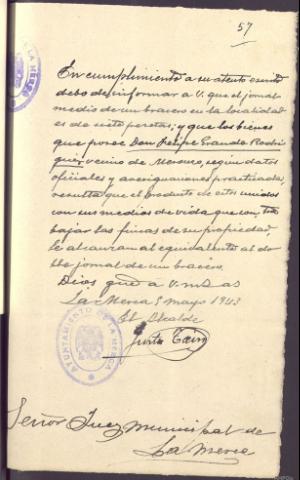 57
En cumplimiento a su atento escrito
debo de informar a V. que el jornal
medio de un bracero en la localidad
es de siete pesetas; y que los bienes
que posee Don Felipe Grande Rodri
guez vecino de Merouzo, según datos
oficiales y averiguaciones practicadas,
resulta que el producto de estos unidos
con sus medios de vida que son, tra
bajar las fincas de su propiedad,
le alcanzan al equivalente al do
ble jornal de un bracero.
Dios gue a V. ms as
La Merca 5 mayo 1943
El Alcalde
AYUNTAMIENTO DE LA MERCA
Señor Juez municipal de
La Merca